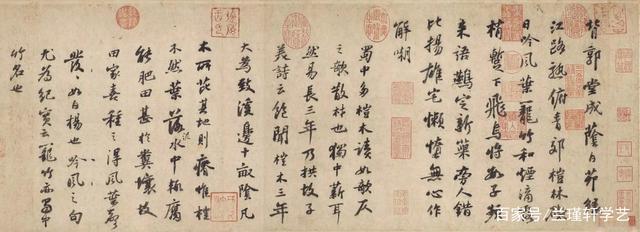 背郭堂成蔭白茅緣
江路熟俯青郊榿林礙
日吟風葉籠竹和煙滴露
梢暫下飛烏將數子頻
來語鷰定新巢旁人錯
比揚雄宅懶惰無心作
解嘲
蜀中多榿木讀如欹仄
之欹散材也獨中薪耳
然易長三年乃拱故子
美詩云飽聞榿木三年
大為致溪邊十畝陰凡
木所芘其地則瘠惟榿
不然葉落泥水中輒腐
能肥田甚於糞壤故
田家喜種之得風葉聲
發發如白楊也吟風之句
尤為紀實云籠竹亦蜀中
竹名也
百家号/兰瑾轩学艺